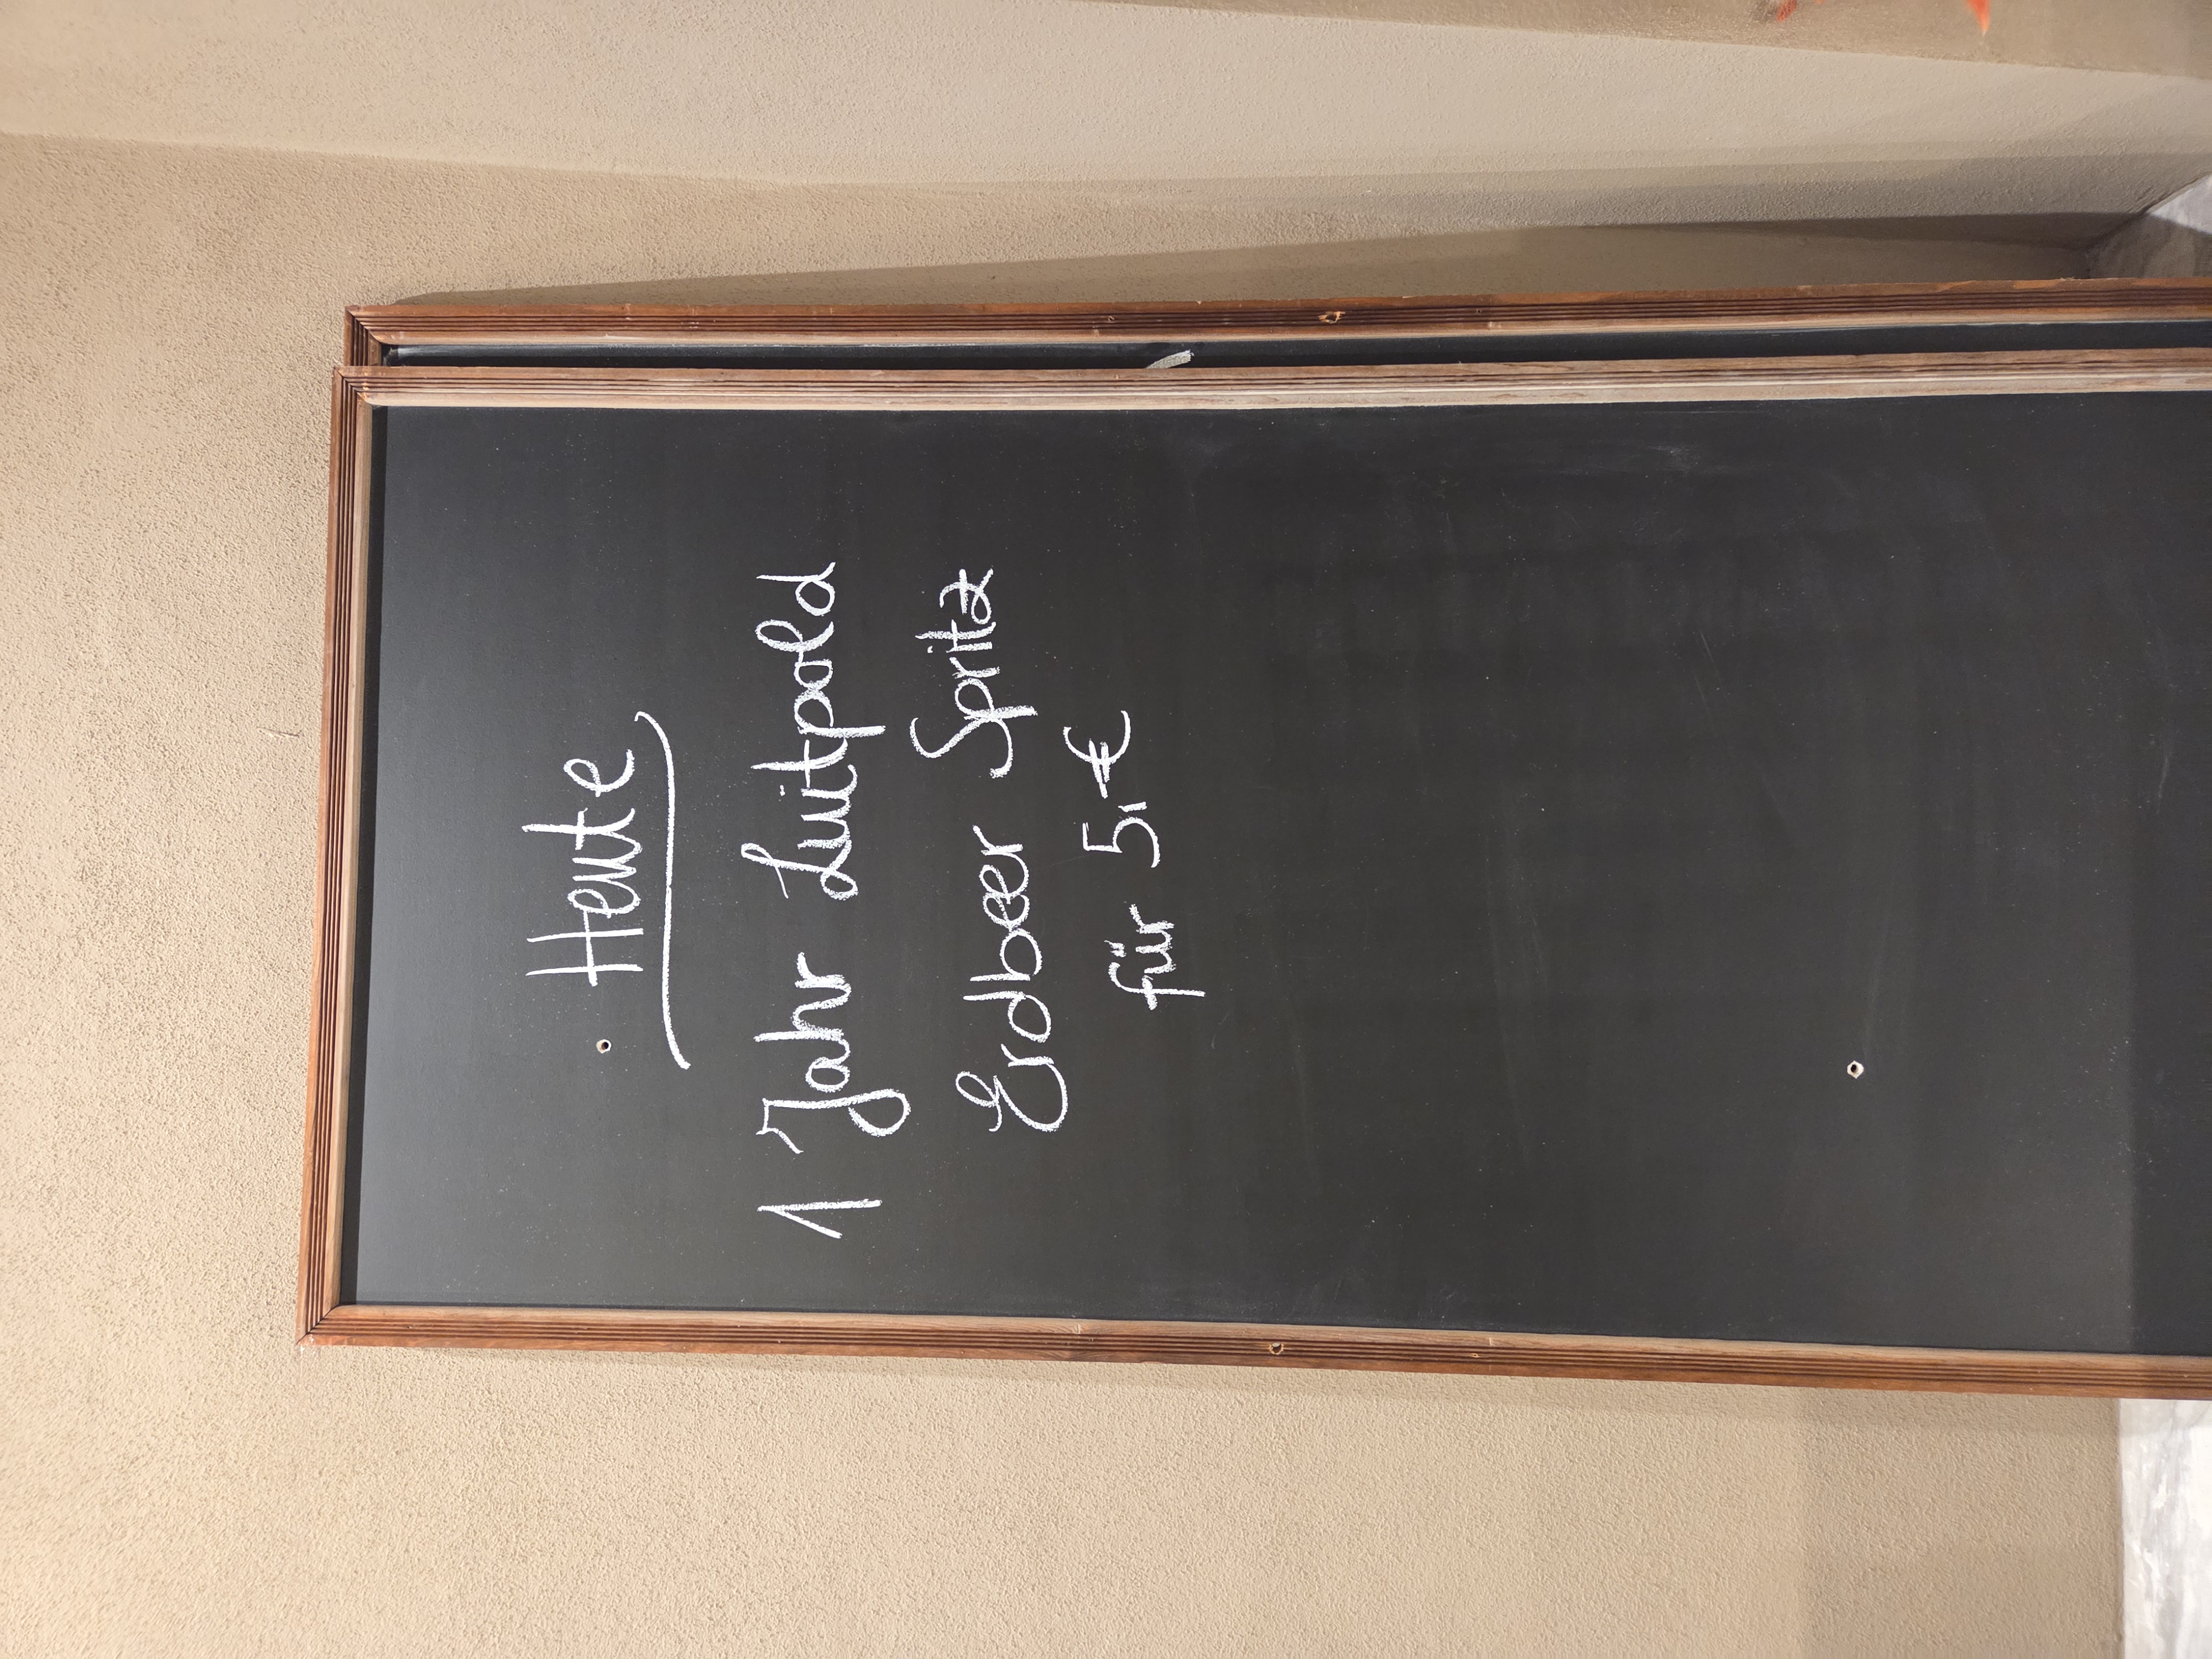 Heute
1 Jahr Luitpold
Erdbeer Spritz
für 5,-€